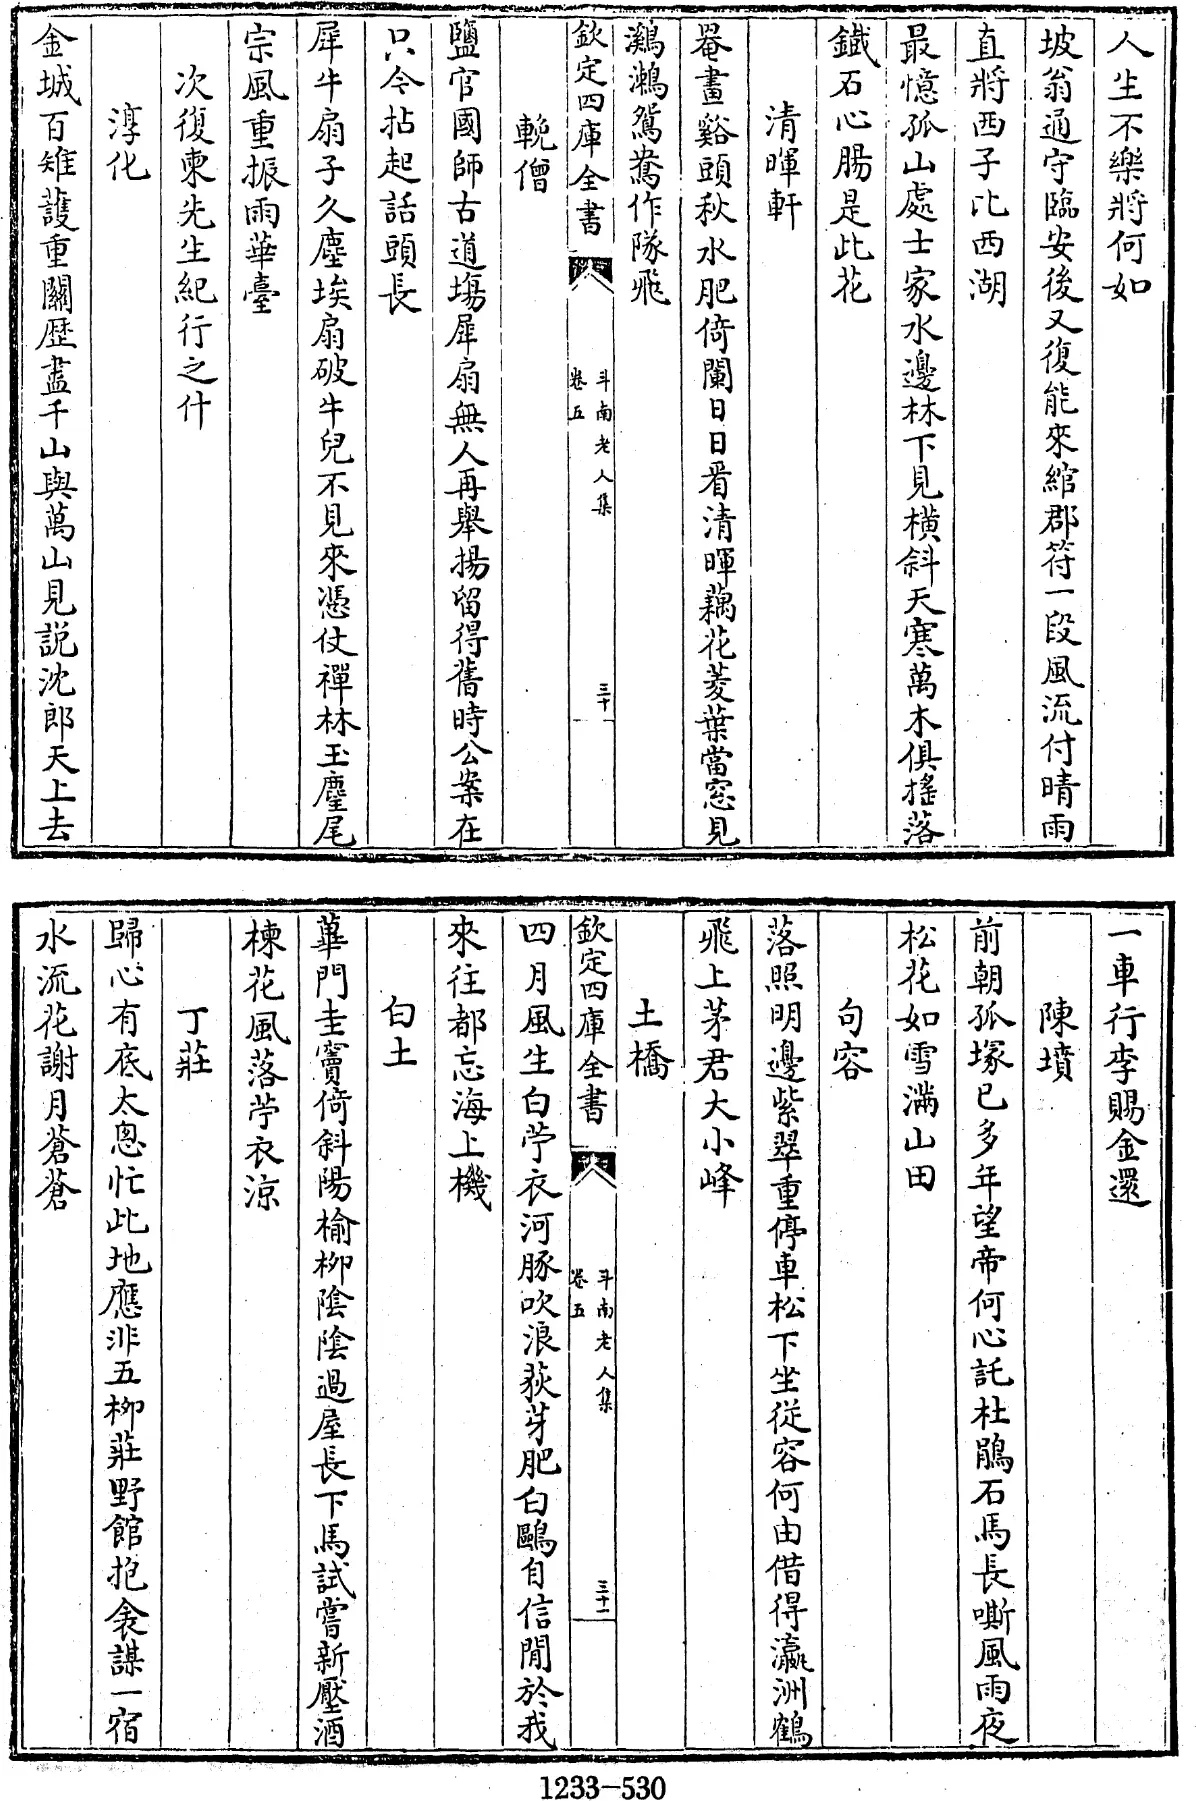 人生不樂將何如
坡翁通守臨安後又復能來綰郡符一段風流付晴雨
直將西子比西湖
最憶孤山處士家水邊林下見橫斜天寒萬木俱搖落
鐵石心腸是此花
清暉軒
罨畫谿頭秋水肥倚闌日日看清暉藕花菱葉當窓見
鸂鶒鴛鴦作隊飛
欽定四庫全書
斗南老人集
卷五
三十
輓僧
鹽官國師古道塲犀扇無人再舉揚留得舊時公案在
只今拈起話頭長
犀牛扇子久塵埃扇破牛兒不見來憑仗禪林玉麈尾
宗風重振雨華臺
次復東先生紀行之什
淳化
金城百雉護重關歴盡千山與萬山見説沈郎天上去
一車行李賜金還
陳墳
前朝孤塚已多年望帝何心託杜鵑石馬長嘶風雨夜
松花如雪滿山田
句容
落照明邊紫翠重停車松下坐從容何由借得瀛洲鶴
飛上茅君大小峰
土橋
欽定四庫全書
斗南老人集
卷五
三十一
四月風生白苧衣河豚吹浪荻芽肥白鷗自信閒於我
來往都忘海上機
白土
蓽門圭竇倚斜陽榆柳陰陰過屋長下馬試嘗新壓酒
楝花風落苧衣涼
丁莊
歸心有底太悤忙此地應非五柳莊野館抱衾謀一宿
水流花謝月蒼蒼
1233-530